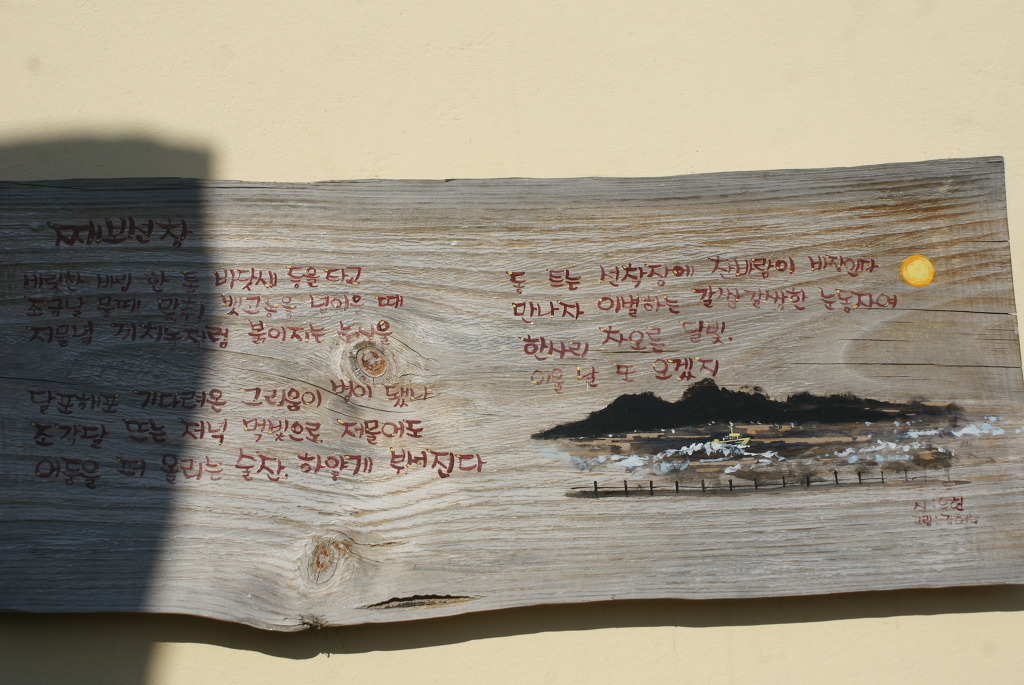 째보선창
비릿한 바람 한 톨 바닷새 등을 타고
조금날 물때 맞춰 뱃고동을 넘이올 때
저물녘 까치노처럼 붉어지는 눈시울
달포해포 기다려온 그리움이 병이 됐나
조각달 뜨는 저녁 먹빛으로 저물어도
어둠을 퍼 올리는 술잔, 하얗게 부서진다
동 트는 선착장에 찬바람이 비잡인다
만나자 이별하는 감실감실한 눈동자여
한사리 차오른 달빛,
이울 날 또 오겠지
시:
그림: